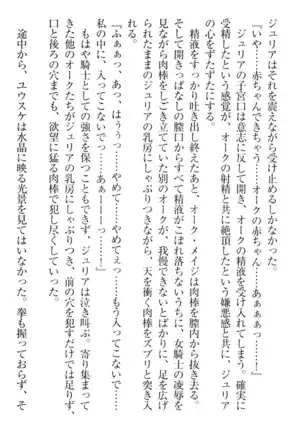 ジュリアはそれを震えながら受け止めるしかなかった。
『いや……赤ちゃんできちゃう……オークの赤ちゃん……あぁぁぁっ……』
ジュリアの子宮口は意志に反して開き、オークの精液を受け入れていた。確実に
受精したという感覚が、オークの射精と共に絶頂したという嫌悪感と共に、ジュリア
の心をずたずたにする。
精液をすっかり吐き出し終えたあと、オーク・メイジは肉棒を膣内から抜き去る。
そして開きっぱなしの膣口からすべて精液がこぼれ落ちないうちに、女騎士の凌辱を
見ながら肉棒をしごき立てていた別のオークが、我慢できないとばかりに、足を広げ
られたままのジュリアの乳房にしゃぶりつきながら、天を衝く肉棒をズブリと突き入
れた。
『ふぁぁっ、あっ、はぅぅっ……やめて……やめてぇっ……もう入ってこないで……
私の中に、入ってこないでっ……あぁぁーーっ……！』
もはや騎士としての強さを保つこともできず、ジュリアは泣き叫ぶ。寄り集まって
きた他のオークたちがジュリアの乳房にしゃぶりつき、前の穴を犯すだけでは足りず、
もっと後ろの穴までも、欲望に猛る肉棒で犯し尽くしていった。
途中から、ユウスケは水晶に映る光景を見てはいなかった。拳も握っておらず、そ